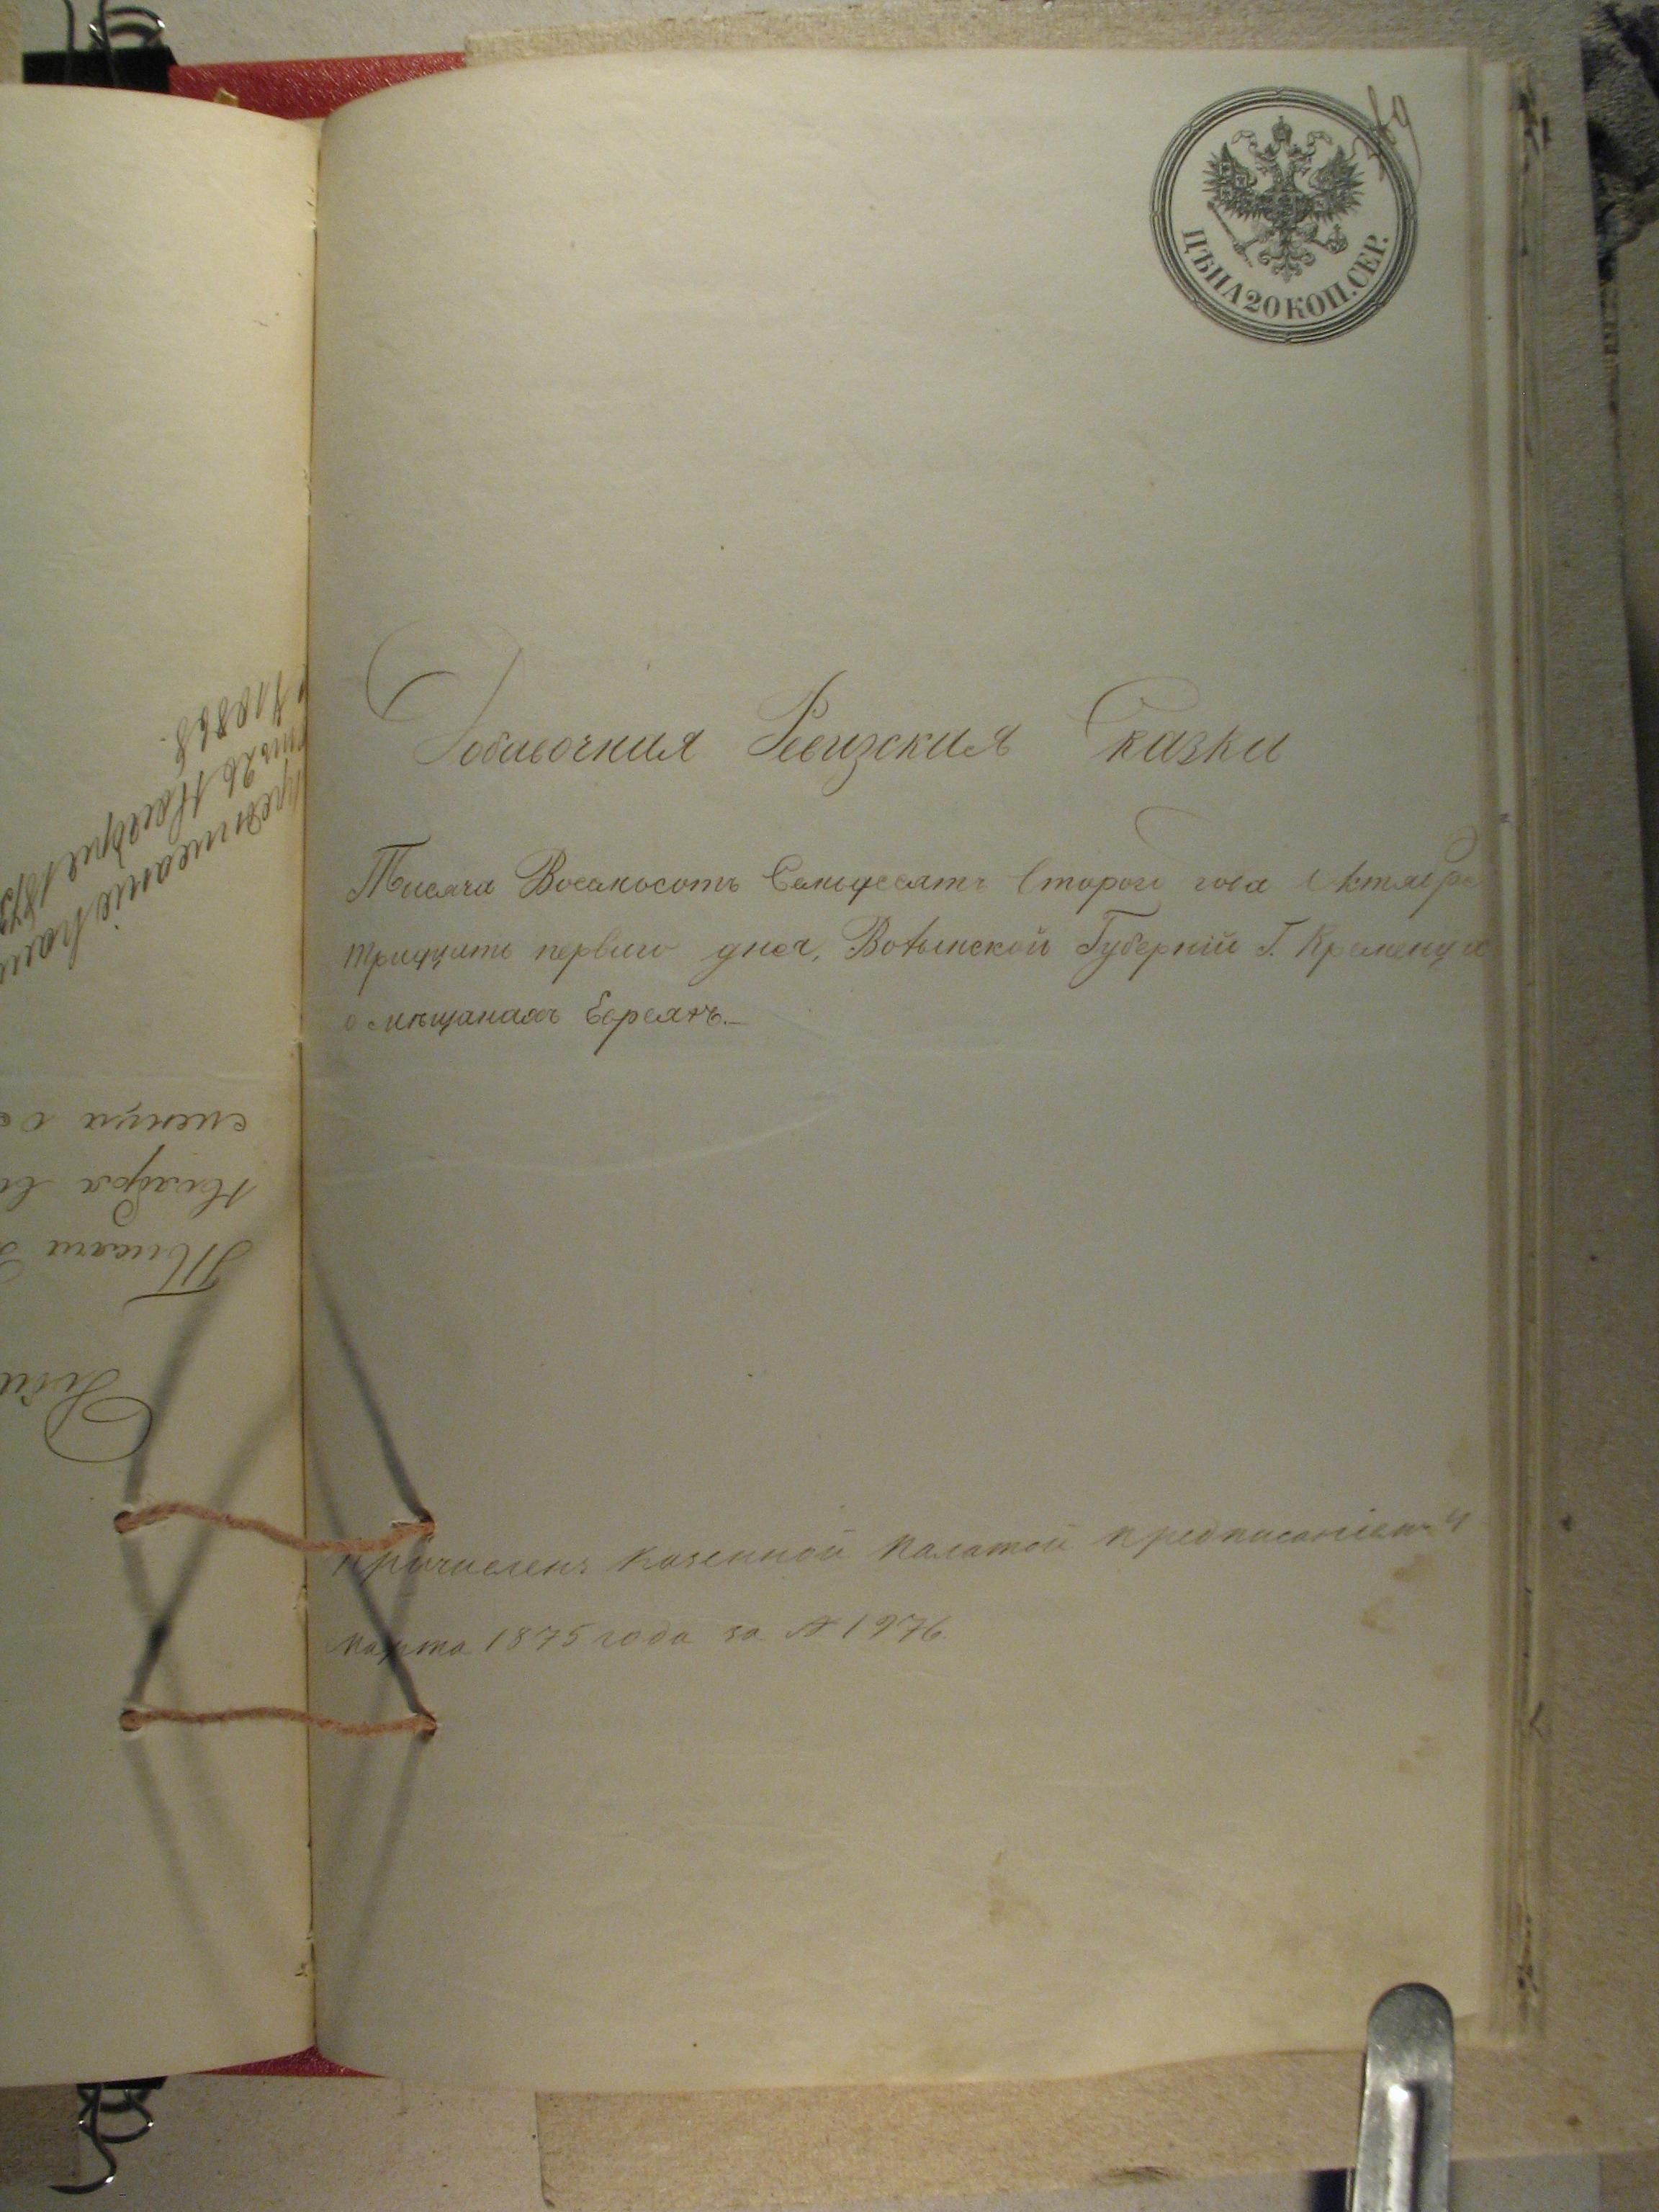 ЦѢНА 20 КОП. СЕР.
Добавочния Ревизския Сказки
Тисяча Восемьсотъ Семьдесятъ Второго года Октября
тридцать первого дня, Волынской Губерніи Г. Кременца
о мѣщанахъ Евреяхъ.
причисленъ Казенной палатой предписаніемъ 4
марта 1875 года за № 1976.
Тисяча
№ 10868.